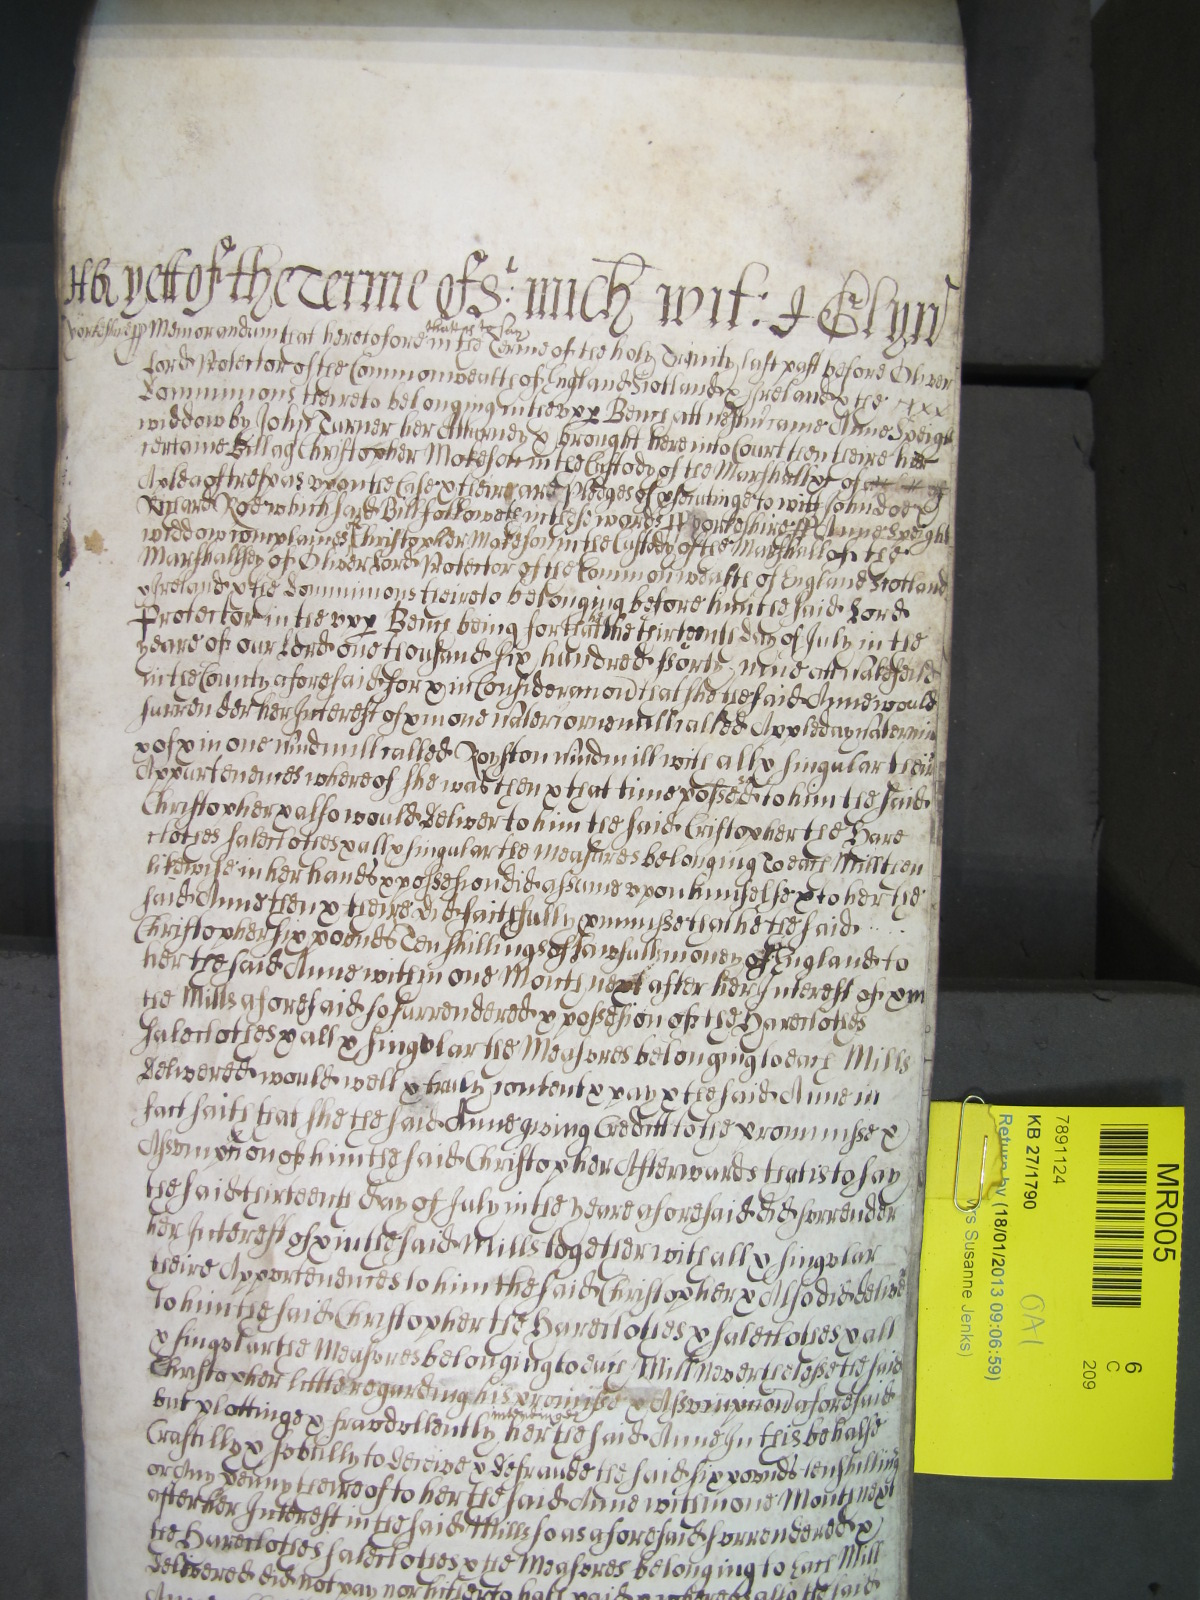 As yett of the Terme of St: Mich wit: J Glyn
Yorkeshire ss Memorandum that heretofore that is to say in the Terme of the holy Trinity last past before Oliver
Lord Protector of the Commonwealth of England Scotland & Ireland & the
Dominions thereto belonging in the upp Bench att Westmr came Anne Speight
widdow by John Turner her Attorney & brought here into Court then theire her
certaine Bill agt Christopher Mokeson in the Custody of the Marshall &c of
A plea of trespas upon the Case & their are Pledges of psecutinge to witt John Doe &
Richard Roe which said Bill followeth in these words ss Yorkeshire ss Anne Speight
widdow complaines of Christopher Mokeson in the Custody of the Marshall of the
Marshallsey of Oliver Lord Protector of the Commonwealth of England Scotland
& Ireland & the Dominions thereto belonging before him the said Lord
Protector in the upp Bench being for that the thirteenth day of July in the
yeare of our Lord one thousand six hundred forty nine att Wakefeild
in the County aforesaid for & in Consideracon that she the said Anne would
surrender her Interest of & in one Watercorne mill called Appleday Watermill
& of & in one Windmill called Royston Windmill with all & singular their
Appurtenences whereof she was then & that time possessed to him the said
Christopher & also would deliver to him the said Cristopher the Hare
clothes saleclothes & all & singular the Measures belonging to each Mill then
likewise in her hands & possession did assume upon himselfe & to her the
said Anne then & theire did faithfully pmisse that he the said
Christopher six pounds Ten shillings of lawfull money of England to
her the said Anne within one Month next after her Interest of & in
the Mills aforesaid so surrendered & possesion of the Hareclothes
saleclothes & all & singular the Measures belonging to each Mills
delivered would well & truly content & pay & the said Anne in
fact saith that she the said Anne giving Creditt to the promisse &
Assumption of him the said Christopher Afterwards that is to say
the said thirteenth day of July in the yeare aforesaid did surrender
her Interest of & in the said Mills together with all & singular
theire Appertenences to him the said Christopher & Also did deliver
to him the said Christopher the Hareclothes & saleclothes & all
& singular the Measures belonging to each Mill Neverthelesse the said
Christopher little regarding his promisse & Assumption aforesaid
but plottinge & fraudullently intendinge her the said Anne In this behalfe
Craftilly & subtilly to deceive & defraude the said six pounds ten shillings
or Any penny thereof to her the said Anne within one Month next
after her Interest in the said Mills so as aforesaid surrendered &
the Hareclothes saleclothes & the Measures belonging to each Mill
delivered did not pay nor hitherto hath paid
MR005
6
C
209
7891124
KB 27/1790
Return by (18/01/2013 09:06:59)
Mrs Susanne Jenks)